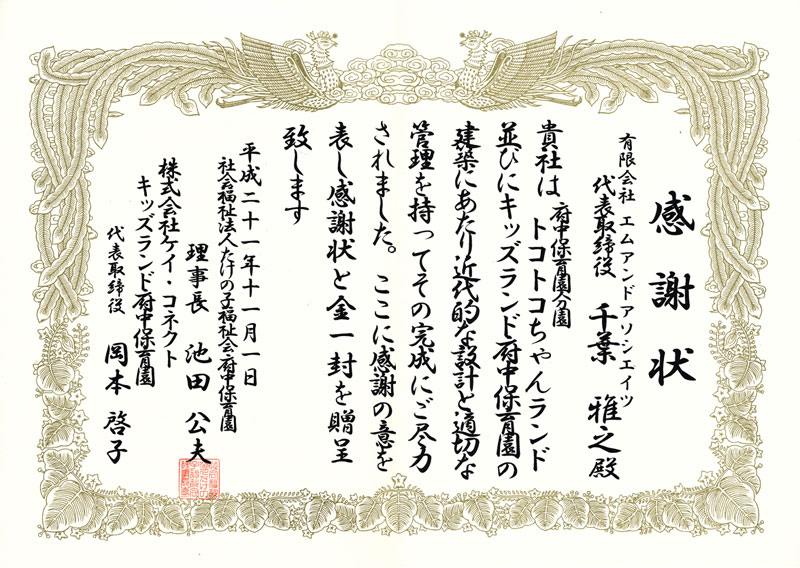 感謝状
有限会社 エムアンドアソシエイツ
代表取締役 千葉 雅之殿
貴社は 府中保育園分園 トコトコちゃんランド
並びにキッズランド府中保育園の
建築にあたり近代的な設計と適切な
管理を持ってその完成にご尽力
されました。ここに感謝の意を
表し感謝状と金一封を贈呈
致します
平成二十一年十一月一日
社会福祉法人たけの子福祉会府中保育園
理事長 池田 公夫
株式会社ケイ・コネクト
キッズランド府中保育園
代表取締役 岡本 啓子